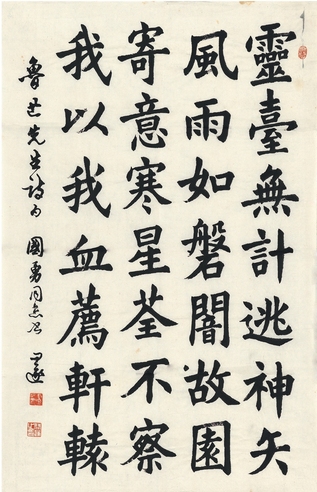 靈臺無計逃神矢
風雨如磐闇故園
寄意寒星荃不察
我以我血薦軒轅
魯迅先生詩 國勇同志